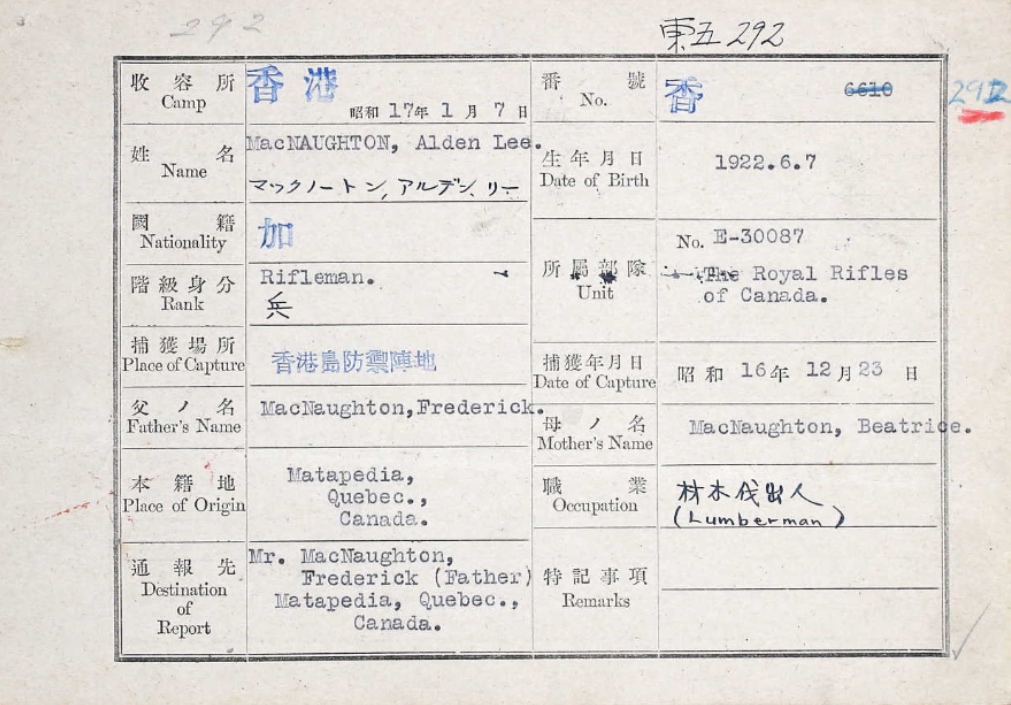 292
東五292
收容所
Camp
香港
昭和 17年 1月 7日
番號
No.
香
6610
292
姓名
Name
MacNAUGHTON, Alden Lee.
マックノートン, アルデン、リー
生年月日
Date of Birth
1922.6.7
國籍
Nationality
加
階級身分
Rank
Rifleman.
兵
所屬部隊
Unit
No. E-30087
The Royal Rifles
of Canada.
捕獲場所
Place of Capture
香港島防禦陣地
捕獲年月日
Date of Capture
昭和 16年 12月 23日
父ノ名
Father's Name
MacNaughton,Frederick.
母ノ名
Mother's Name
MacNaughton, Beatrice.
本籍地
Place of Origin
Matapedia,
Quebec.,
Canada.
職業
Occupation
材木伐出人
(Lumberman)
通報先
Destination
of
Report
Mr. MacNaughton,
Frederick (Father)
Matapedia, Quebec.,
Canada.
特記事項
Remarks